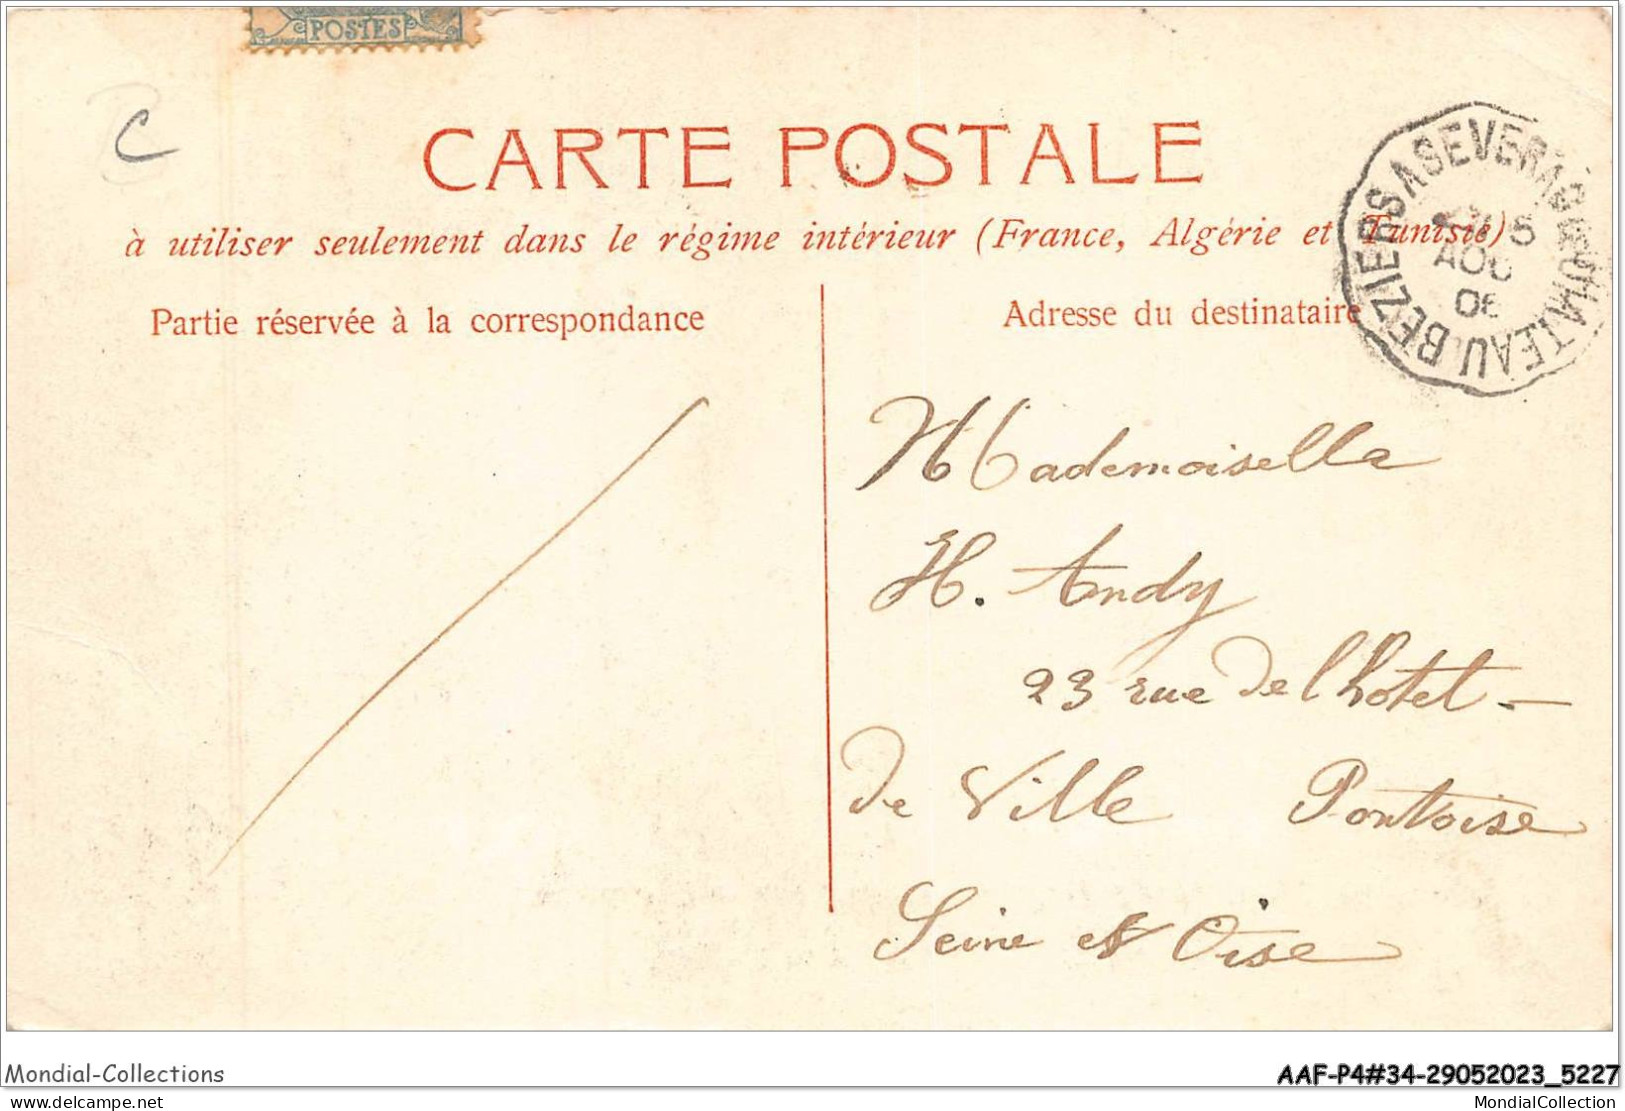 POSTES
C
CARTE POSTALE
à utiliser seulement dans le régime intérieur (France, Algérie et Tunisie)
Partie réservée à la correspondance
Adresse du destinataire
BEZIERS A SEVERAC LE CHATEAU
5
AOU
06
Mademoiselle
H. Andy
23 rue de l'hotel -
de Ville Pontoise
Seine et Oise
Mondial-Collections
AAF-P4#34-29052023_5227
www.delcampe.net
MondialCollection